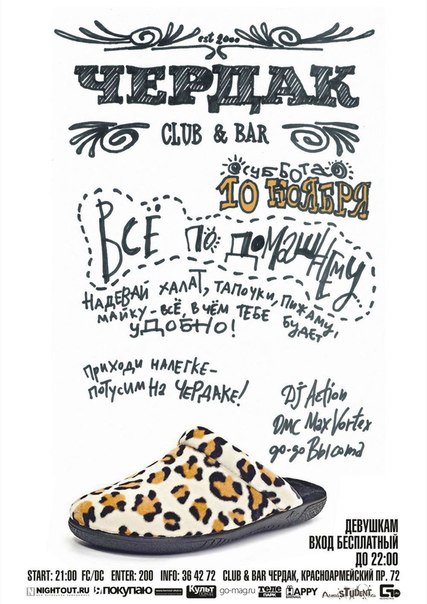 est 2000
ЧЕРДАК
CLUB & BAR
СУББОТА
10 НОЯБРЯ
ВСЁ ПО ДОМАШНЕМУ
НАДЕВАЙ ХАЛАТ, ТАПОЧКИ, ПИЖАМУ,
МАЙКУ - ВСЁ, В ЧЁМ ТЕБЕ БУДЕТ
УДОБНО!
ПРИХОДИ НАЛЕГКЕ -
ПОТУСИМ НА ЧЕРДАКЕ!
Dj Action
DMC Max Vortex
go-go Высота
ДЕВУШКАМ
ВХОД БЕСПЛАТНЫЙ
ДО 22:00
START: 21:00 FC/DC ENTER: 200 INFO: 36 42 72 CLUB & BAR ЧЕРДАК, КРАСНОАРМЕЙСКИЙ ПР. 72
NIGHTOUT.RU ПОКУПАЮ Культ go-mag.ru ТЕЛЕ БАНК APPY STUDENT